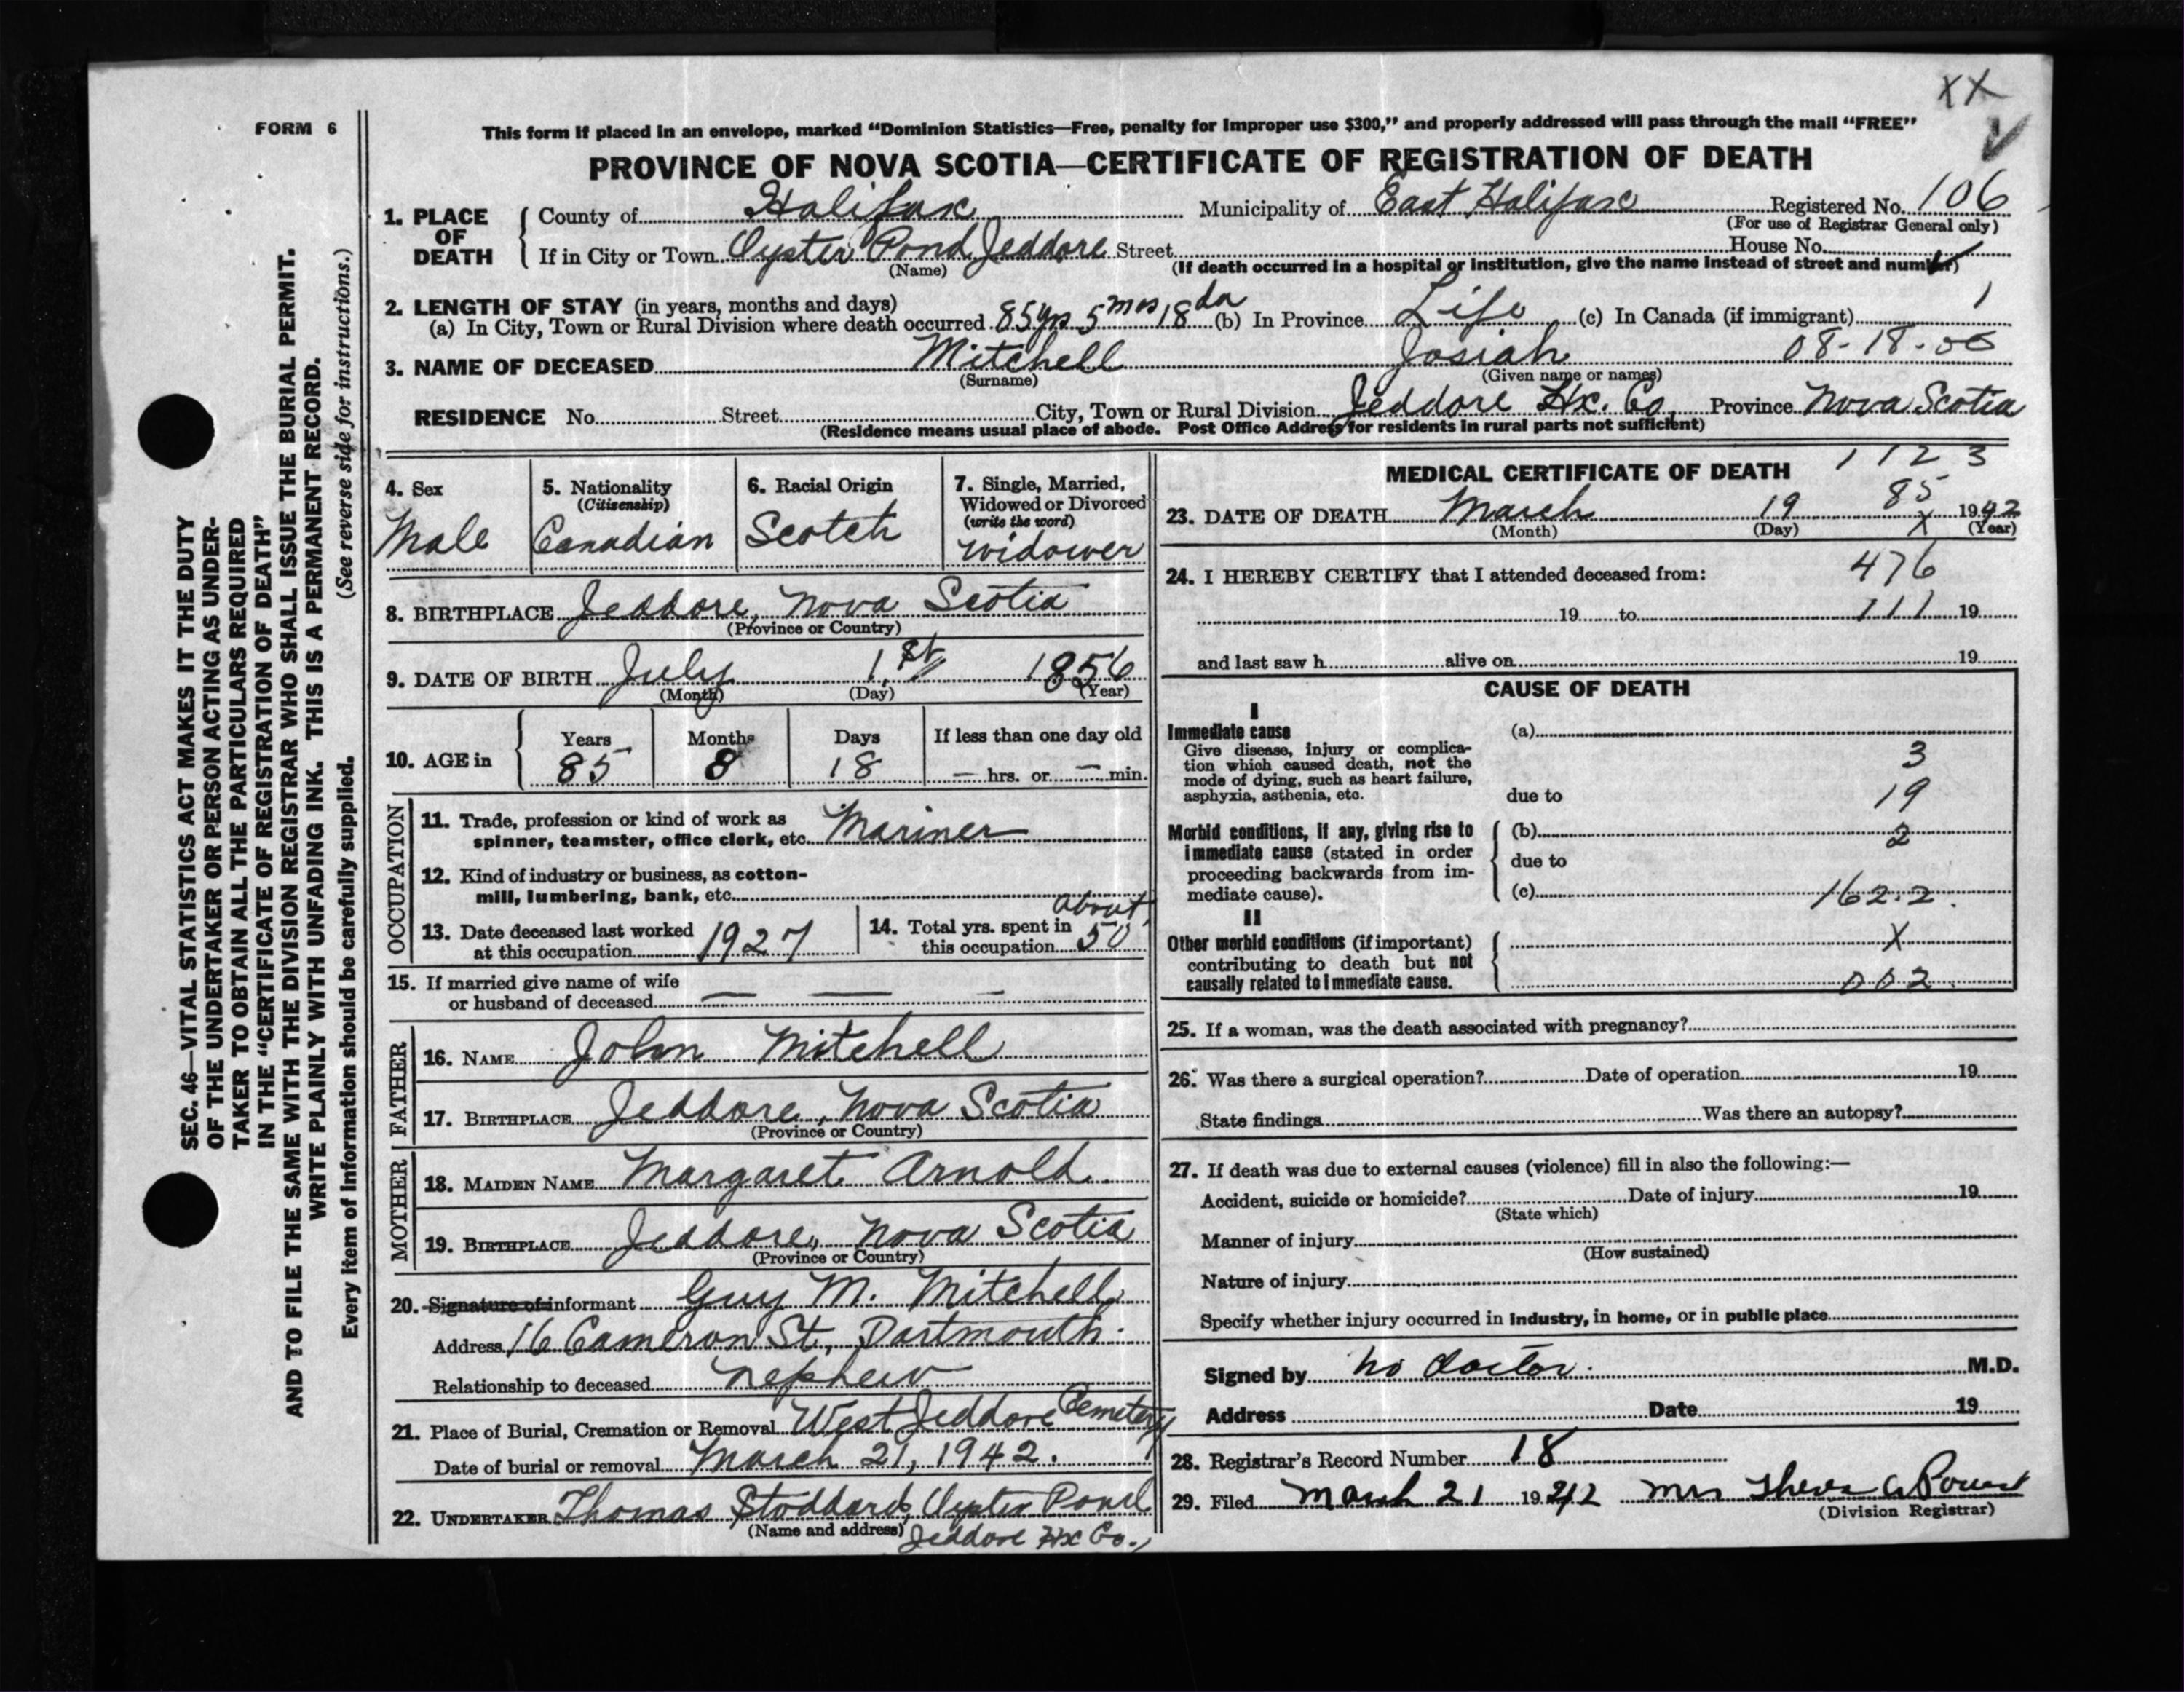 XX
FORM 6
This form if placed in an envelope, marked “Dominion Statistics—Free, penalty for improper use $300,” and properly addressed will pass through the mail “FREE”
PROVINCE OF NOVA SCOTIA—CERTIFICATE OF REGISTRATION OF DEATH
1. PLACE OF DEATH
County of Halifax Municipality of East Halifax Registered No. 106
(For use of Registrar General only)
If in City or Town Oyster Pond Jeddore Street House No.
(Name) (If death occurred in a hospital or institution, give the name instead of street and number)
2. LENGTH OF STAY (in years, months and days)
(a) In City, Town or Rural Division where death occurred 85 yrs 5 mos 18 da (b) In Province Life (c) In Canada (if immigrant) 1
3. NAME OF DECEASED Mitchell Josiah 08-18-00
(Surname) (Given name or names)
RESIDENCE No. Street City, Town or Rural Division Jeddore Hx. Co. Province Nova Scotia
(Residence means usual place of abode. Post Office Address for residents in rural parts not sufficient)
4. Sex
Male
5. Nationality
(Citizenship)
Canadian
6. Racial Origin
Scotch
7. Single, Married,
Widowed or Divorced
(write the word)
widower
8. BIRTHPLACE Jeddore, Nova Scotia
(Province or Country)
9. DATE OF BIRTH July 1st 1856
(Month) (Day) (Year)
10. AGE in
Years Months Days If less than one day old
85 8 18 — hrs. or — min.
OCCUPATION
11. Trade, profession or kind of work as
spinner, teamster, office clerk, etc. Mariner
12. Kind of industry or business, as cotton-
mill, lumbering, bank, etc.
13. Date deceased last worked
at this occupation 1927
14. Total yrs. spent in
this occupation about 50
15. If married give name of wife
or husband of deceased — — -
FATHER
16. NAME John Mitchell
17. BIRTHPLACE Jeddore, Nova Scotia
(Province or Country)
MOTHER
18. MAIDEN NAME Margaret Arnold
19. BIRTHPLACE Jeddore, Nova Scotia
(Province or Country)
20. Signature of informant Guy M. Mitchell
Address 16 Cameron St, Dartmouth.
Relationship to deceased nephew
21. Place of Burial, Cremation or Removal West Jeddore Cemetery
Date of burial or removal March 21, 1942.
22. UNDERTAKER Thomas Stoddard, Oyster Pond
(Name and address) Jeddore Hx Co.,
MEDICAL CERTIFICATE OF DEATH 1123
85
23. DATE OF DEATH March 19 X 1942
(Month) (Day) (Year)
24. I HEREBY CERTIFY that I attended deceased from: 476
19 to 111 19
and last saw h alive on 19
CAUSE OF DEATH
I
Immediate cause
Give disease, injury or complica-
tion which caused death, not the
mode of dying, such as heart failure,
asphyxia, asthenia, etc.
(a)
3
due to 19
Morbid conditions, if any, giving rise to
immediate cause (stated in order
proceeding backwards from im-
mediate cause).
(b) 2
due to
(c) 162.2.
II
Other morbid conditions (if important)
contributing to death but not
causally related to immediate cause.
X
002
25. If a woman, was the death associated with pregnancy?
26. Was there a surgical operation? Date of operation 19
State findings Was there an autopsy?
27. If death was due to external causes (violence) fill in also the following:—
Accident, suicide or homicide? Date of injury 19
(State which)
Manner of injury
(How sustained)
Nature of injury
Specify whether injury occurred in industry, in home, or in public place
Signed by no doctor. M.D.
Address Date 19
28. Registrar's Record Number 18
29. Filed March 21 1942 Mrs
(Division Registrar)
SEC. 46—VITAL STATISTICS ACT MAKES IT THE DUTY
OF THE UNDERTAKER OR PERSON ACTING AS UNDER-
TAKER TO OBTAIN ALL THE PARTICULARS REQUIRED
IN THE “CERTIFICATE OF REGISTRATION OF DEATH”
AND TO FILE THE SAME WITH THE DIVISION REGISTRAR WHO SHALL ISSUE THE BURIAL PERMIT.
WRITE PLAINLY WITH UNFADING INK. THIS IS A PERMANENT RECORD.
Every item of information should be carefully supplied. (See reverse side for instructions.)